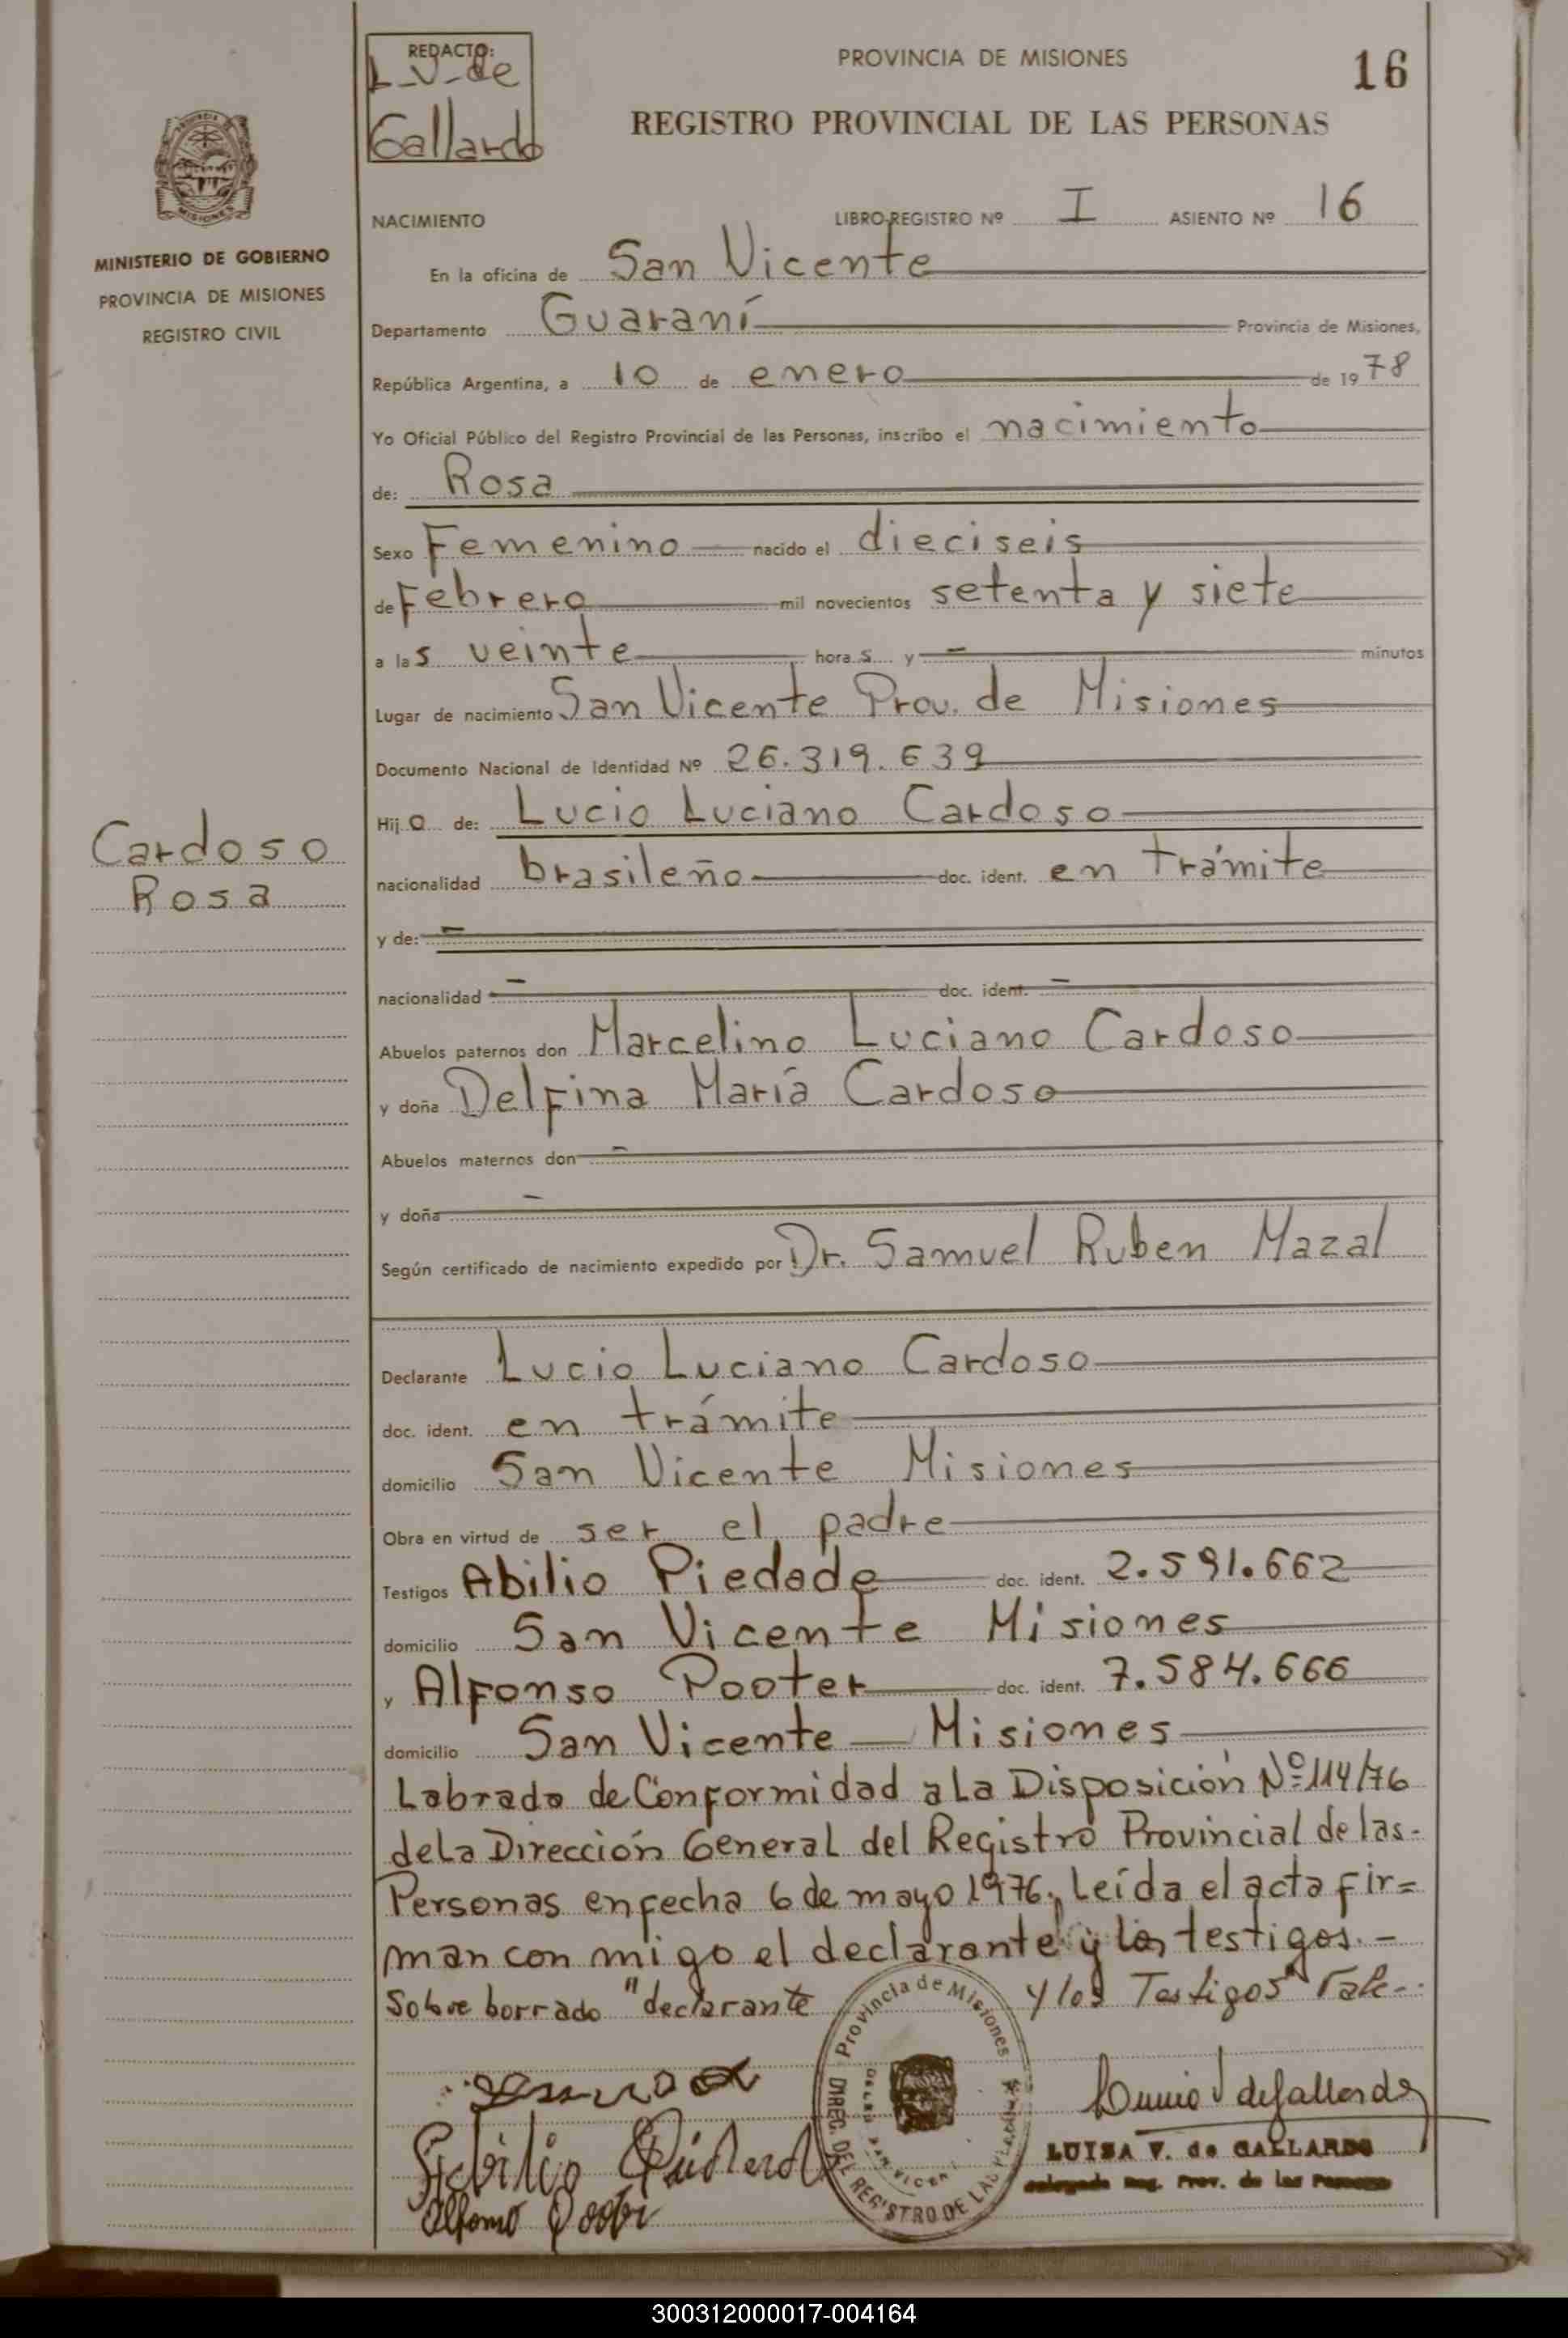 REDACTO:
L-V-de
Gallardo
PROVINCIA DE MISIONES
16
REGISTRO PROVINCIAL DE LAS PERSONAS
PROVINCIA DE
MISIONES
MINISTERIO DE GOBIERNO
PROVINCIA DE MISIONES
REGISTRO CIVIL
NACIMIENTO LIBRO REGISTRO Nº I ASIENTO Nº 16
En la oficina de San Vicente
Departamento Guaraní Provincia de Misiones,
República Argentina, a 10 de enero de 1978
Yo Oficial Público del Registro Provincial de las Personas, inscribo el nacimiento
de: Rosa
Sexo Femenino nacido el dieciseis
de Febrero mil novecientos setenta y siete
a las veinte horas y - minutos
Lugar de nacimiento San Vicente Prov. de Misiones
Documento Nacional de Identidad Nº 26.319.639
Hija de: Lucio Luciano Cardoso
Cardoso
Rosa
nacionalidad brasileño doc. ident. en trámite
y de: -
nacionalidad - doc. ident. -
Abuelos paternos don Marcelino Luciano Cardoso
y doña Delfina María Cardoso
Abuelos maternos don -
y doña -
Según certificado de nacimiento expedido por Dr. Samuel Ruben Mazal
Declarante Lucio Luciano Cardoso
doc. ident. en trámite
domicilio San Vicente Misiones
Obra en virtud de ser el padre
Testigos Abilio Piedade doc. ident. 2.591.662
domicilio San Vicente Misiones
y Alfonso Pooter doc. ident. 7.584.666
domicilio San Vicente — Misiones
Labrada de Conformidad a la Disposición Nº 114/76
de la Dirección General del Registro Provincial de las-
Personas en fecha 6 de mayo 1976. Leída el acta fir=
man con migo el declarante y los testigos.-
Sobre borrado "declarante y los Testigos" Vale-.
Provincia de Misiones
DIREC. DEL REGISTRO DE LAS
LUISA V. de GALLARDO
Delegada Reg. Prov. de las Personas
300312000017-004164